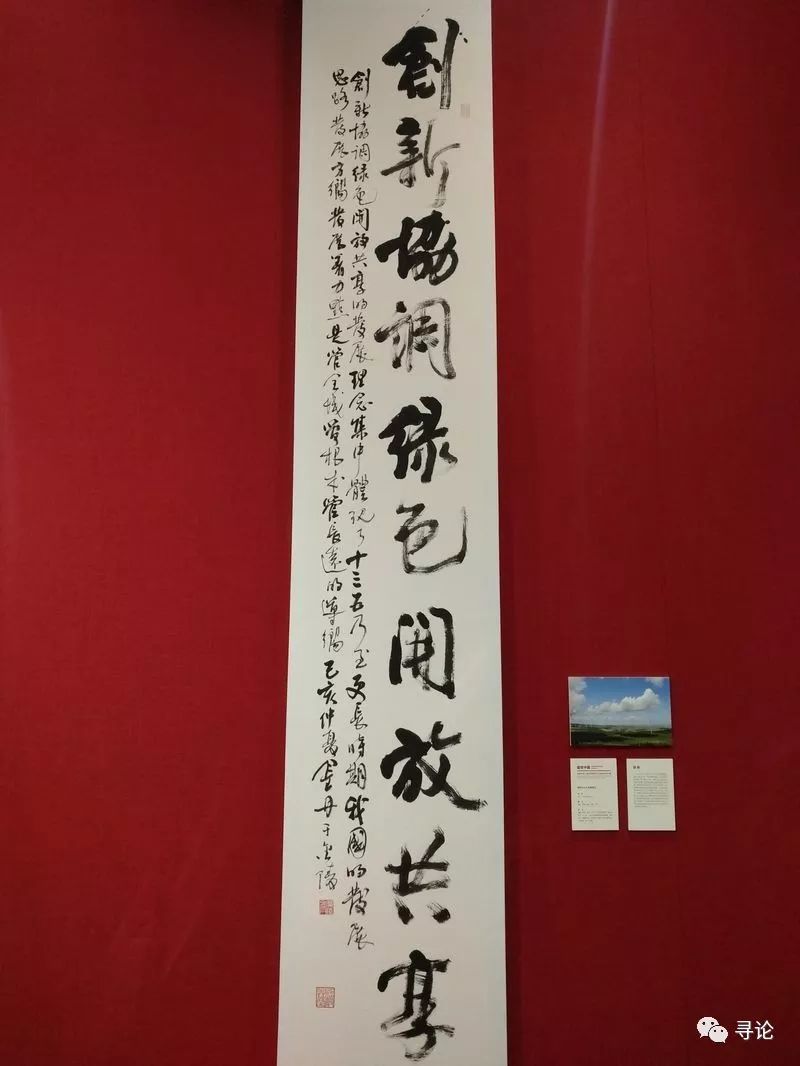 創新協調綠色開放共享
創新協調綠色開放共享的發展理念集中體現了十三五乃至更長時期我國的發展
思路發展方嚮發展著力點是管全域管根本管長遠的導嚮己亥仲夏金丹于金陵
寻论